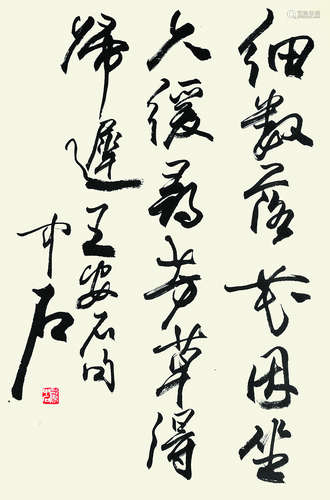 细数落花因坐
久缓寻芳草得
归迟王安石句
中石